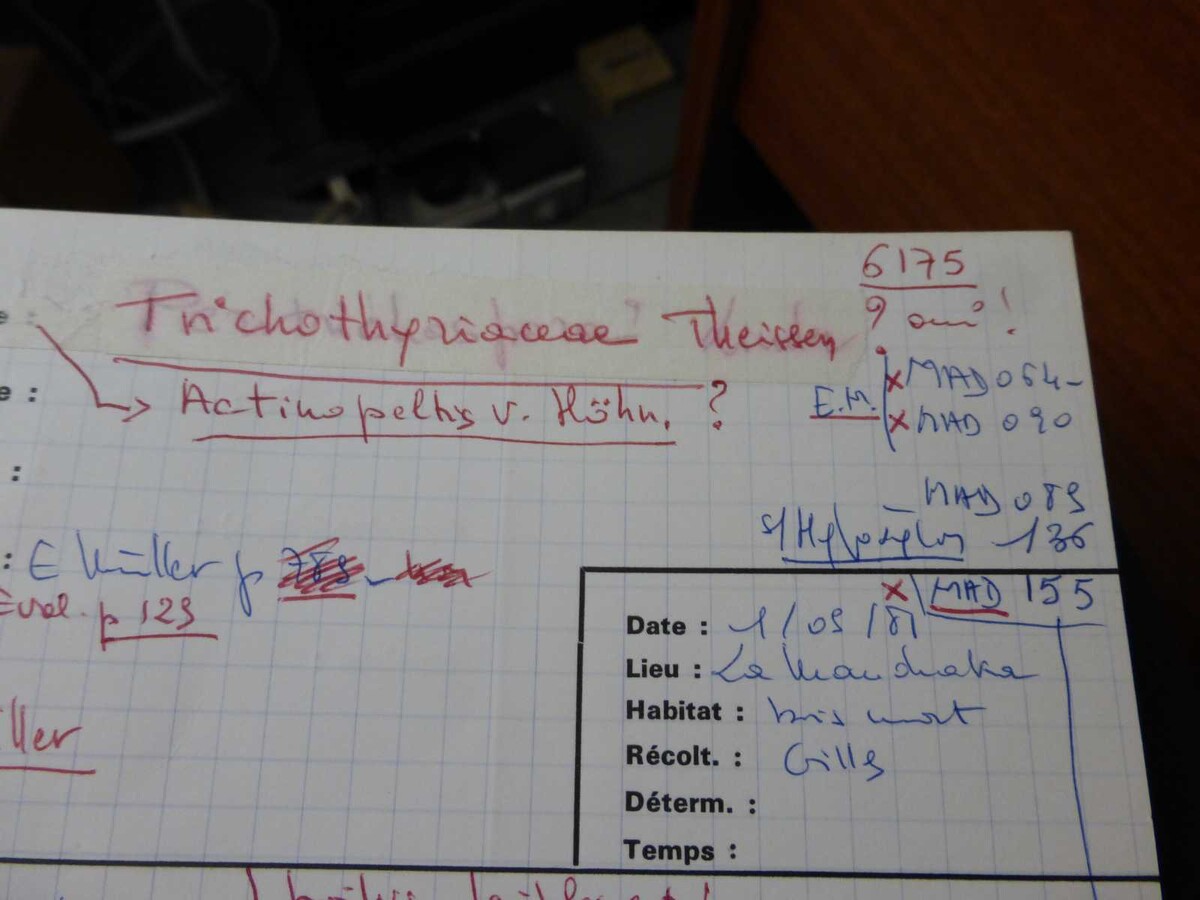 6175
e :
Trichothyriaceae Theissen
? oui !
→ Actinopeltis v. Höhn. ?
E.M.
x MAD 064-
x MAD 090
e :
:
- MAD 089
s/ Hypoxylon - 136
: E Müller p
Eval. p 129
x MAD 155
Date : 1/09/81
Lieu : La Mandraka
Habitat : bois mort
Récolt. : Gilles
Déterm. :
Temps :
ller